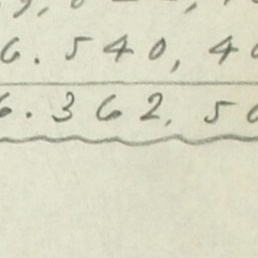 6.540,40
6.362.50